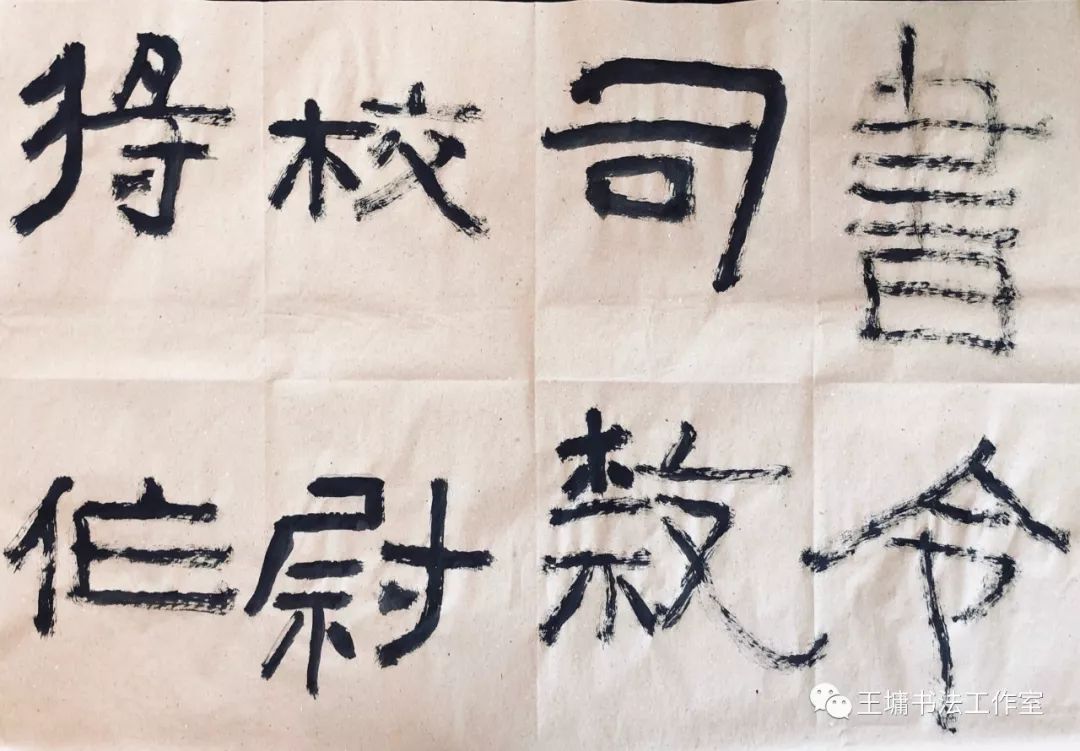 書令
司隸
校尉
得
王墉书法工作室